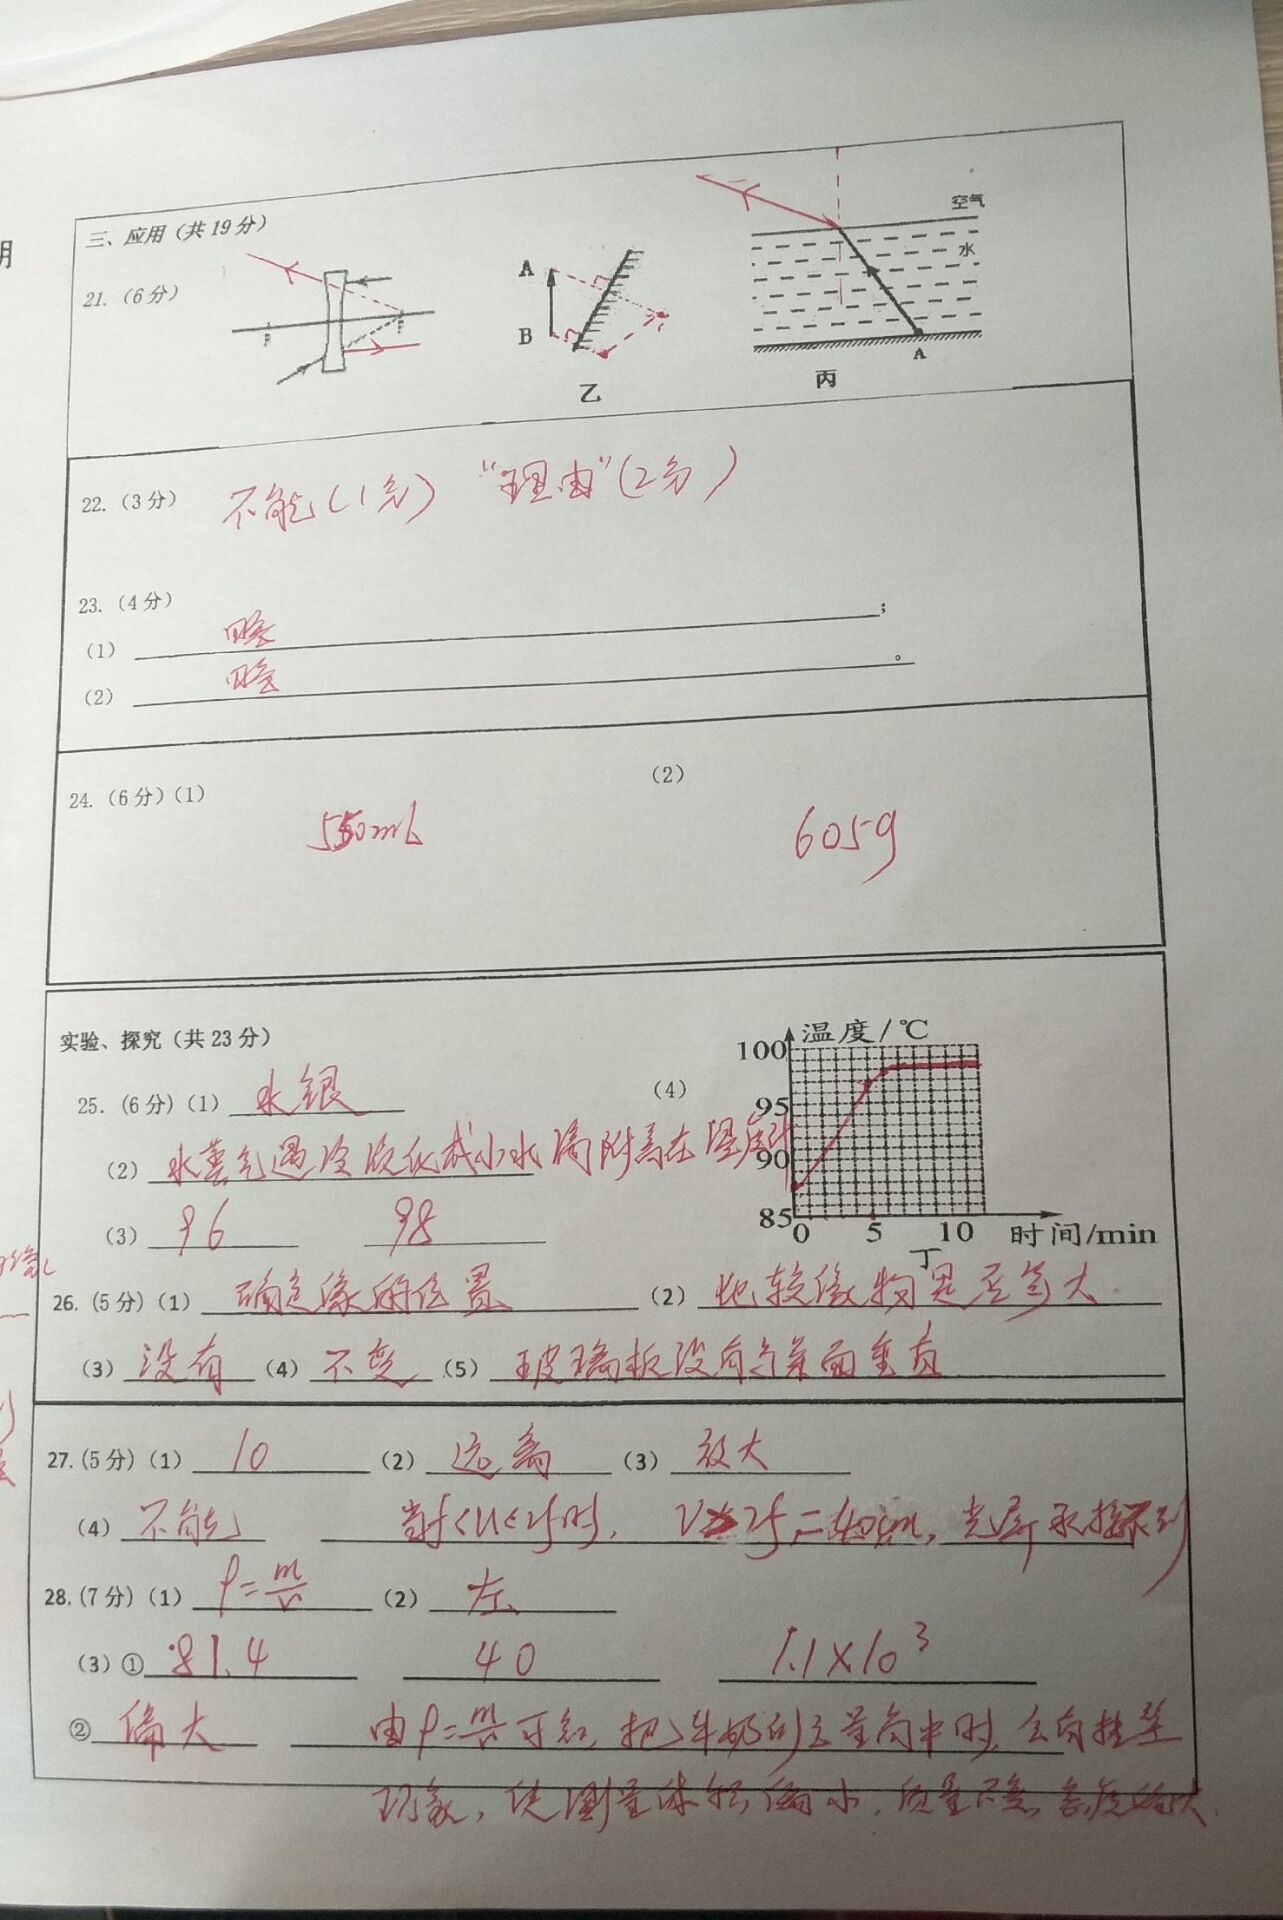 明
三、应用（共19分）
21.（6分）
F F
A
B
乙
空气
水
A
丙
22.（3分） 不能（1分） “理由”（2分）
23.（4分）
（1） 略 ；
（2） 略 。
24.（6分）（1） 550mL （2） 605g
实验、探究（共23分）
25.（6分）（1） 水银 （4）
温度/℃
100
95
90
85
0 5 10 时间/min
丁
（2） 水蒸气遇冷液化成小水滴附着在温度计
（3） 96 98
26.（5分）（1） 确定像的位置 （2） 比较像物是否等大
（3） 没有 （4） 不变 （5） 玻璃板没有与桌面垂直
27.（5分）（1） 10 （2） 远离 （3） 放大
（4） 不能 当f<u<2f时，v>2f=40cm，光屏承接不到
28.（7分）（1） ρ=m/V （2） 左
（3）① 81.4 40 1.1×10³
② 偏大 由ρ=m/V可知，把牛奶倒入量筒中时，会有挂壁
现象，使测量体积偏小，质量不变，密度偏大.